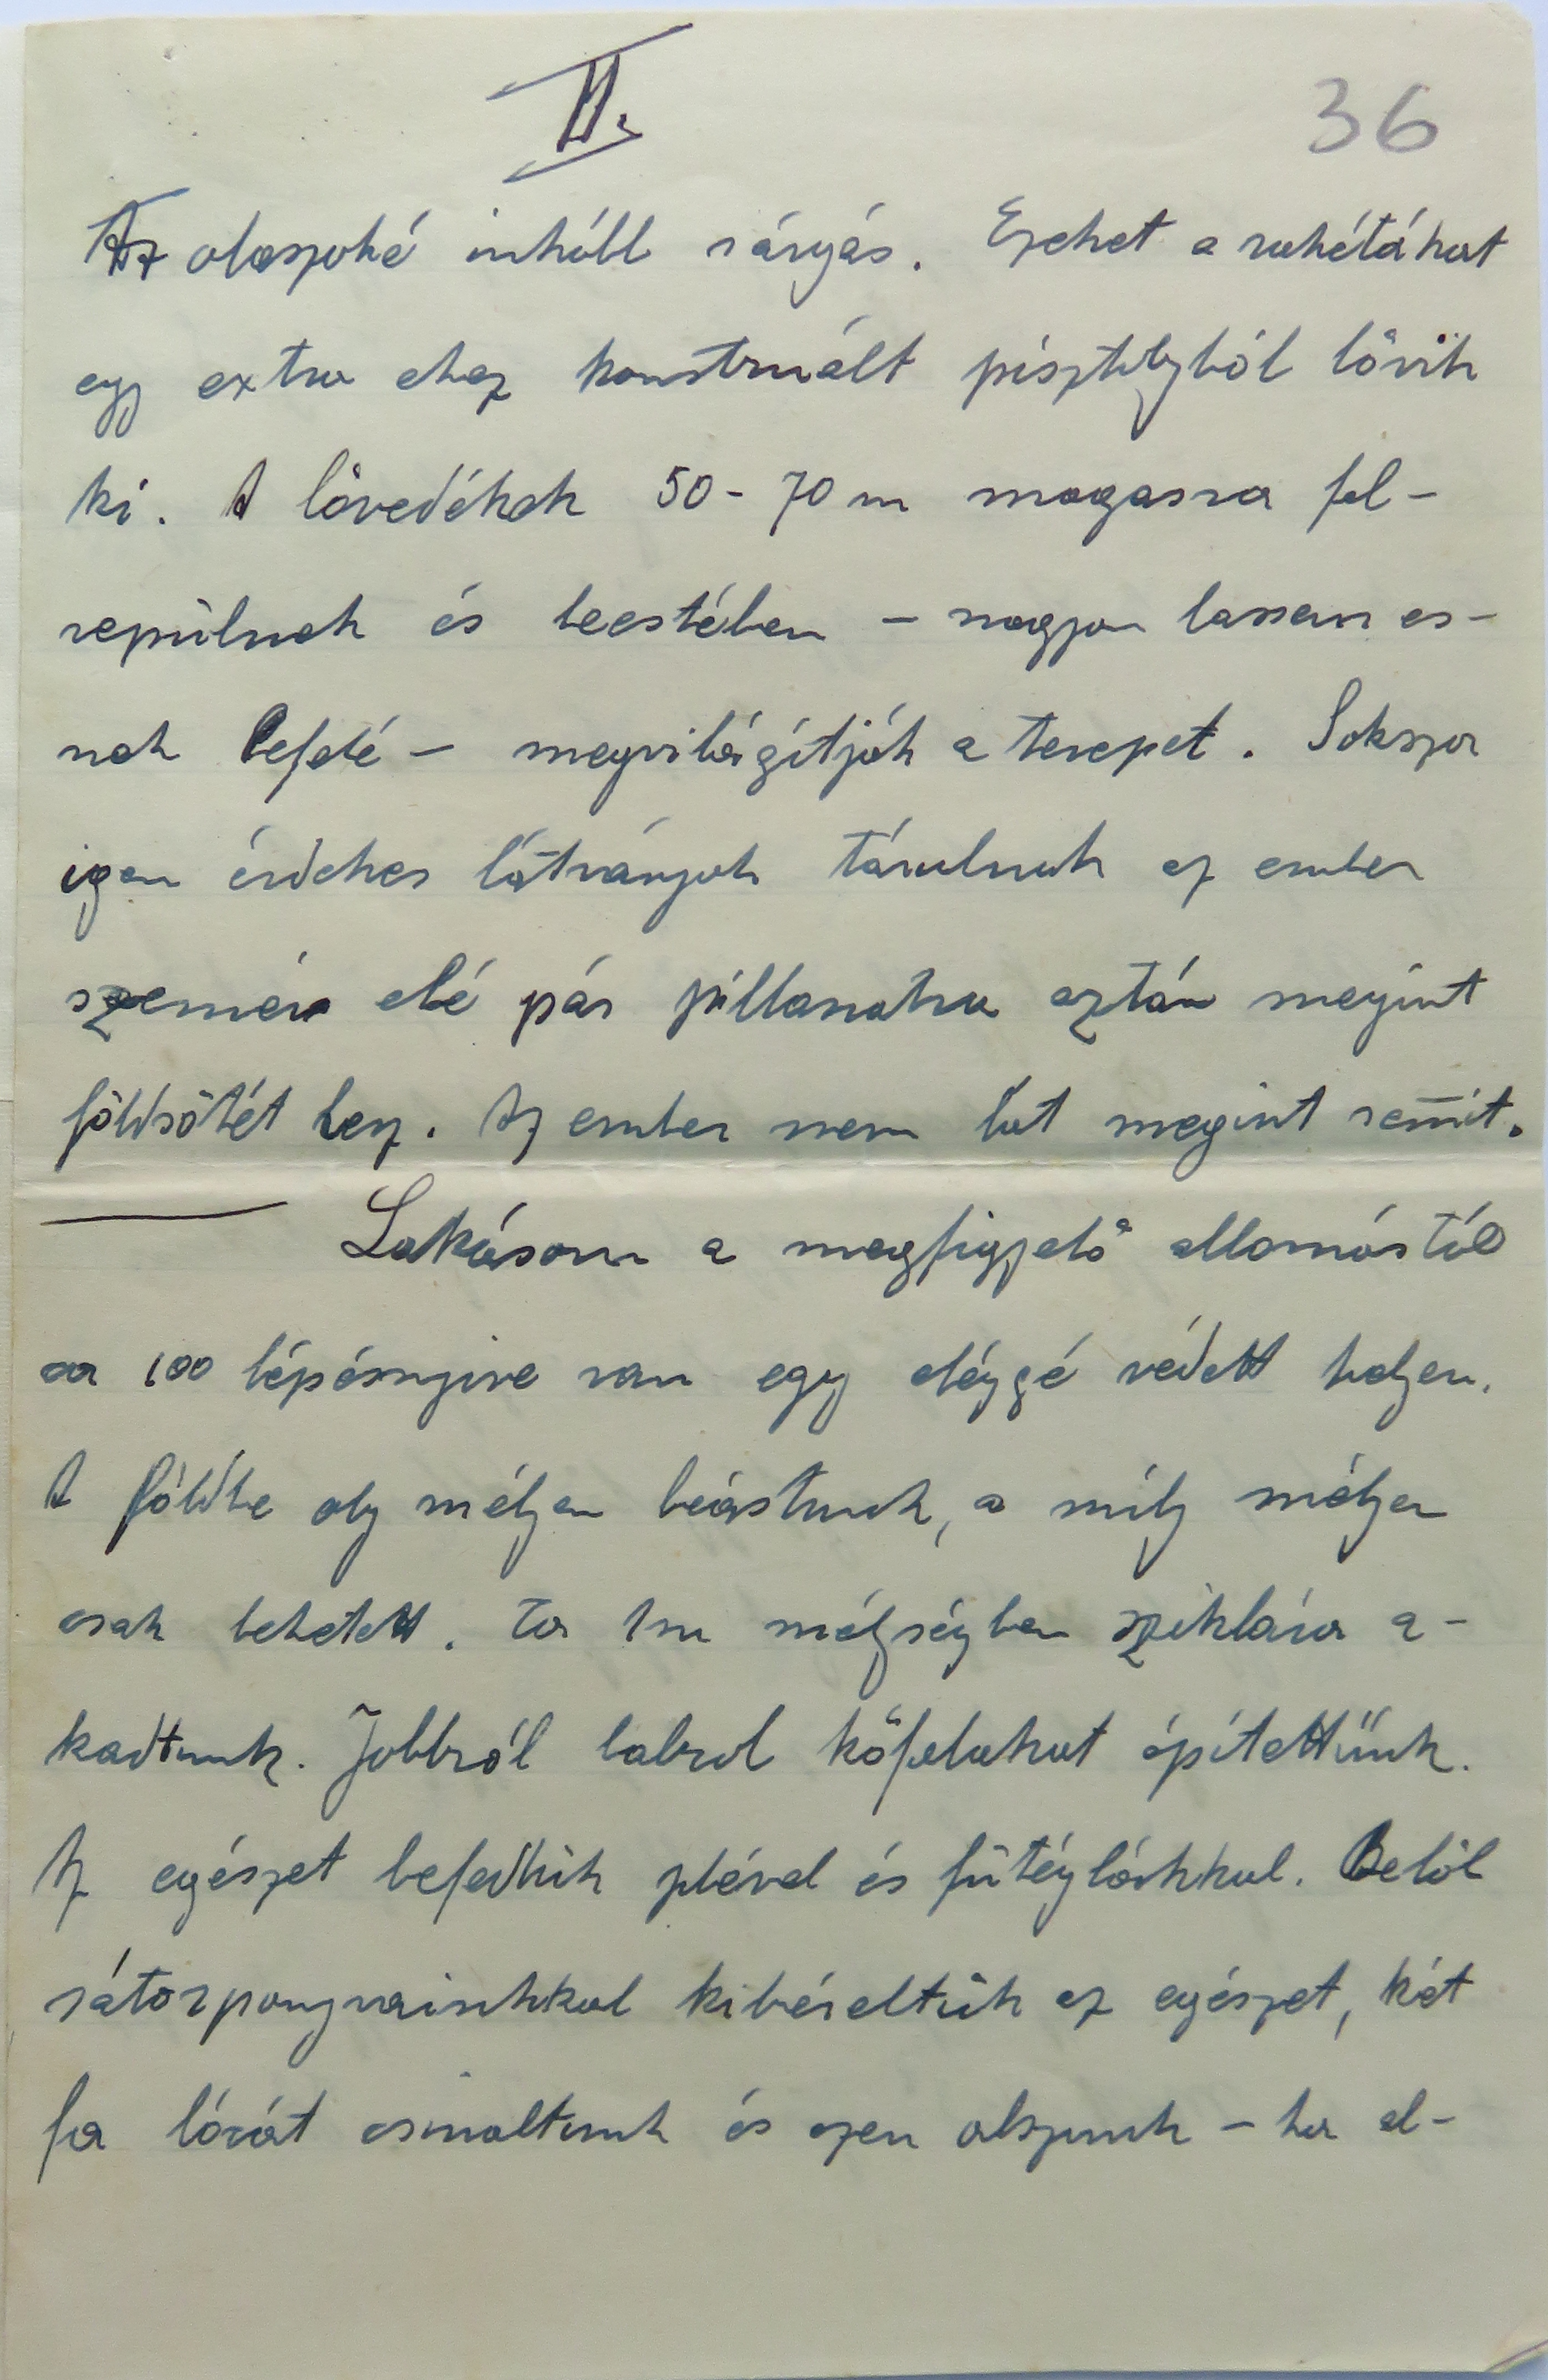 II.
36
Az olaszoké inkább sárgás. Ezeket a rakétákat
egy extra ehez konstruált pisztolyból lövik
ki. A lövedékek 50-70 m magasra fel-
repülnek és leestében - nagyon lassan es-
nek lefelé - megvilágítják a terepet. Sokszor
igen érdekes látványok tárulnak az ember
szemei elé pár pillanatra aztán megint
földsötét lesz. Az ember nem lát megint semmit.
Lakásom a megfigyelő allomástól
100 lépésnyire van egy eléggé védett helyen.
A földbe oly mélyen beástunk, a mily mélyen
csak lehetett. 1 m mélységben sziklára a-
kadtunk. Jobbról balrol kőfalakat építettünk.
Az egészet befedtük plével és fűtéglákkal. Belöl
sátorponyvainkkal kibéreltük az egészet, két
fa lócát csinaltunk és ezen alszunk - ha al-